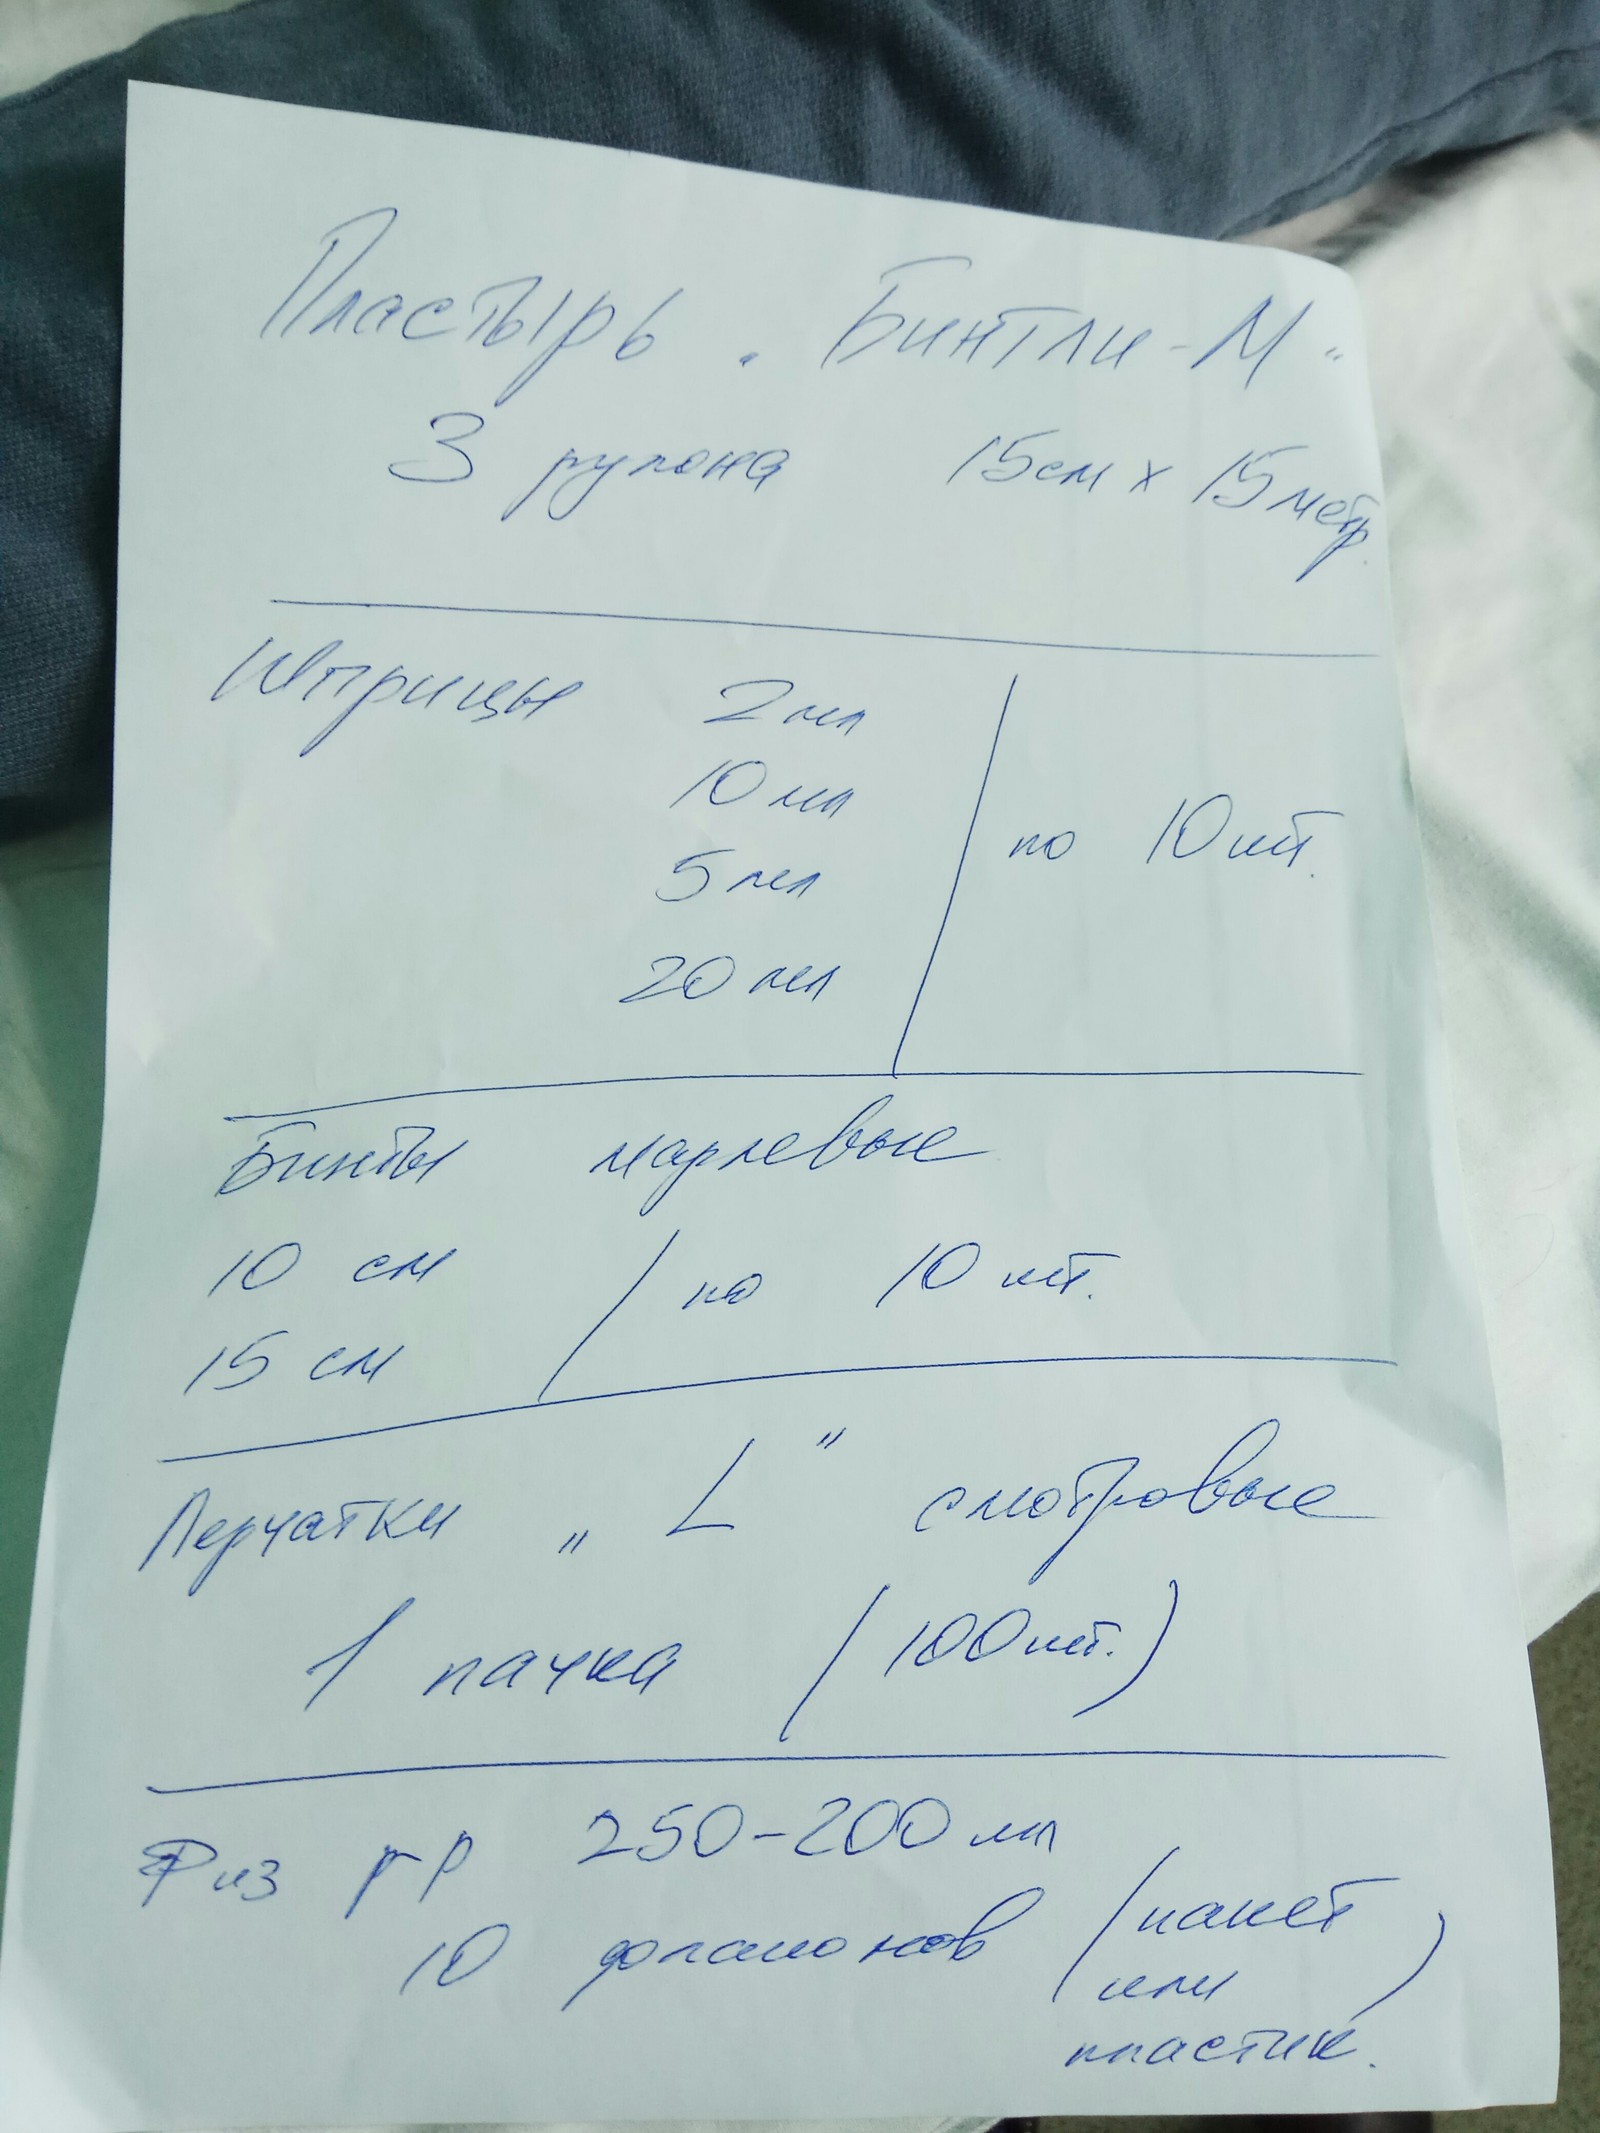 Пластырь "Бинтли-М"
3 рулона 15см х 15метр.
Шприцы 2мл
10 мл
5 мл
20 мл
по 10 шт.
Бинты марлевые
10 см
15 см
по 10 шт.
Перчатки „L” смотровые
1 пачка (100шт.)
Физ р-р 250-200 мл
10 флаконов (пакет
или
пластик.)